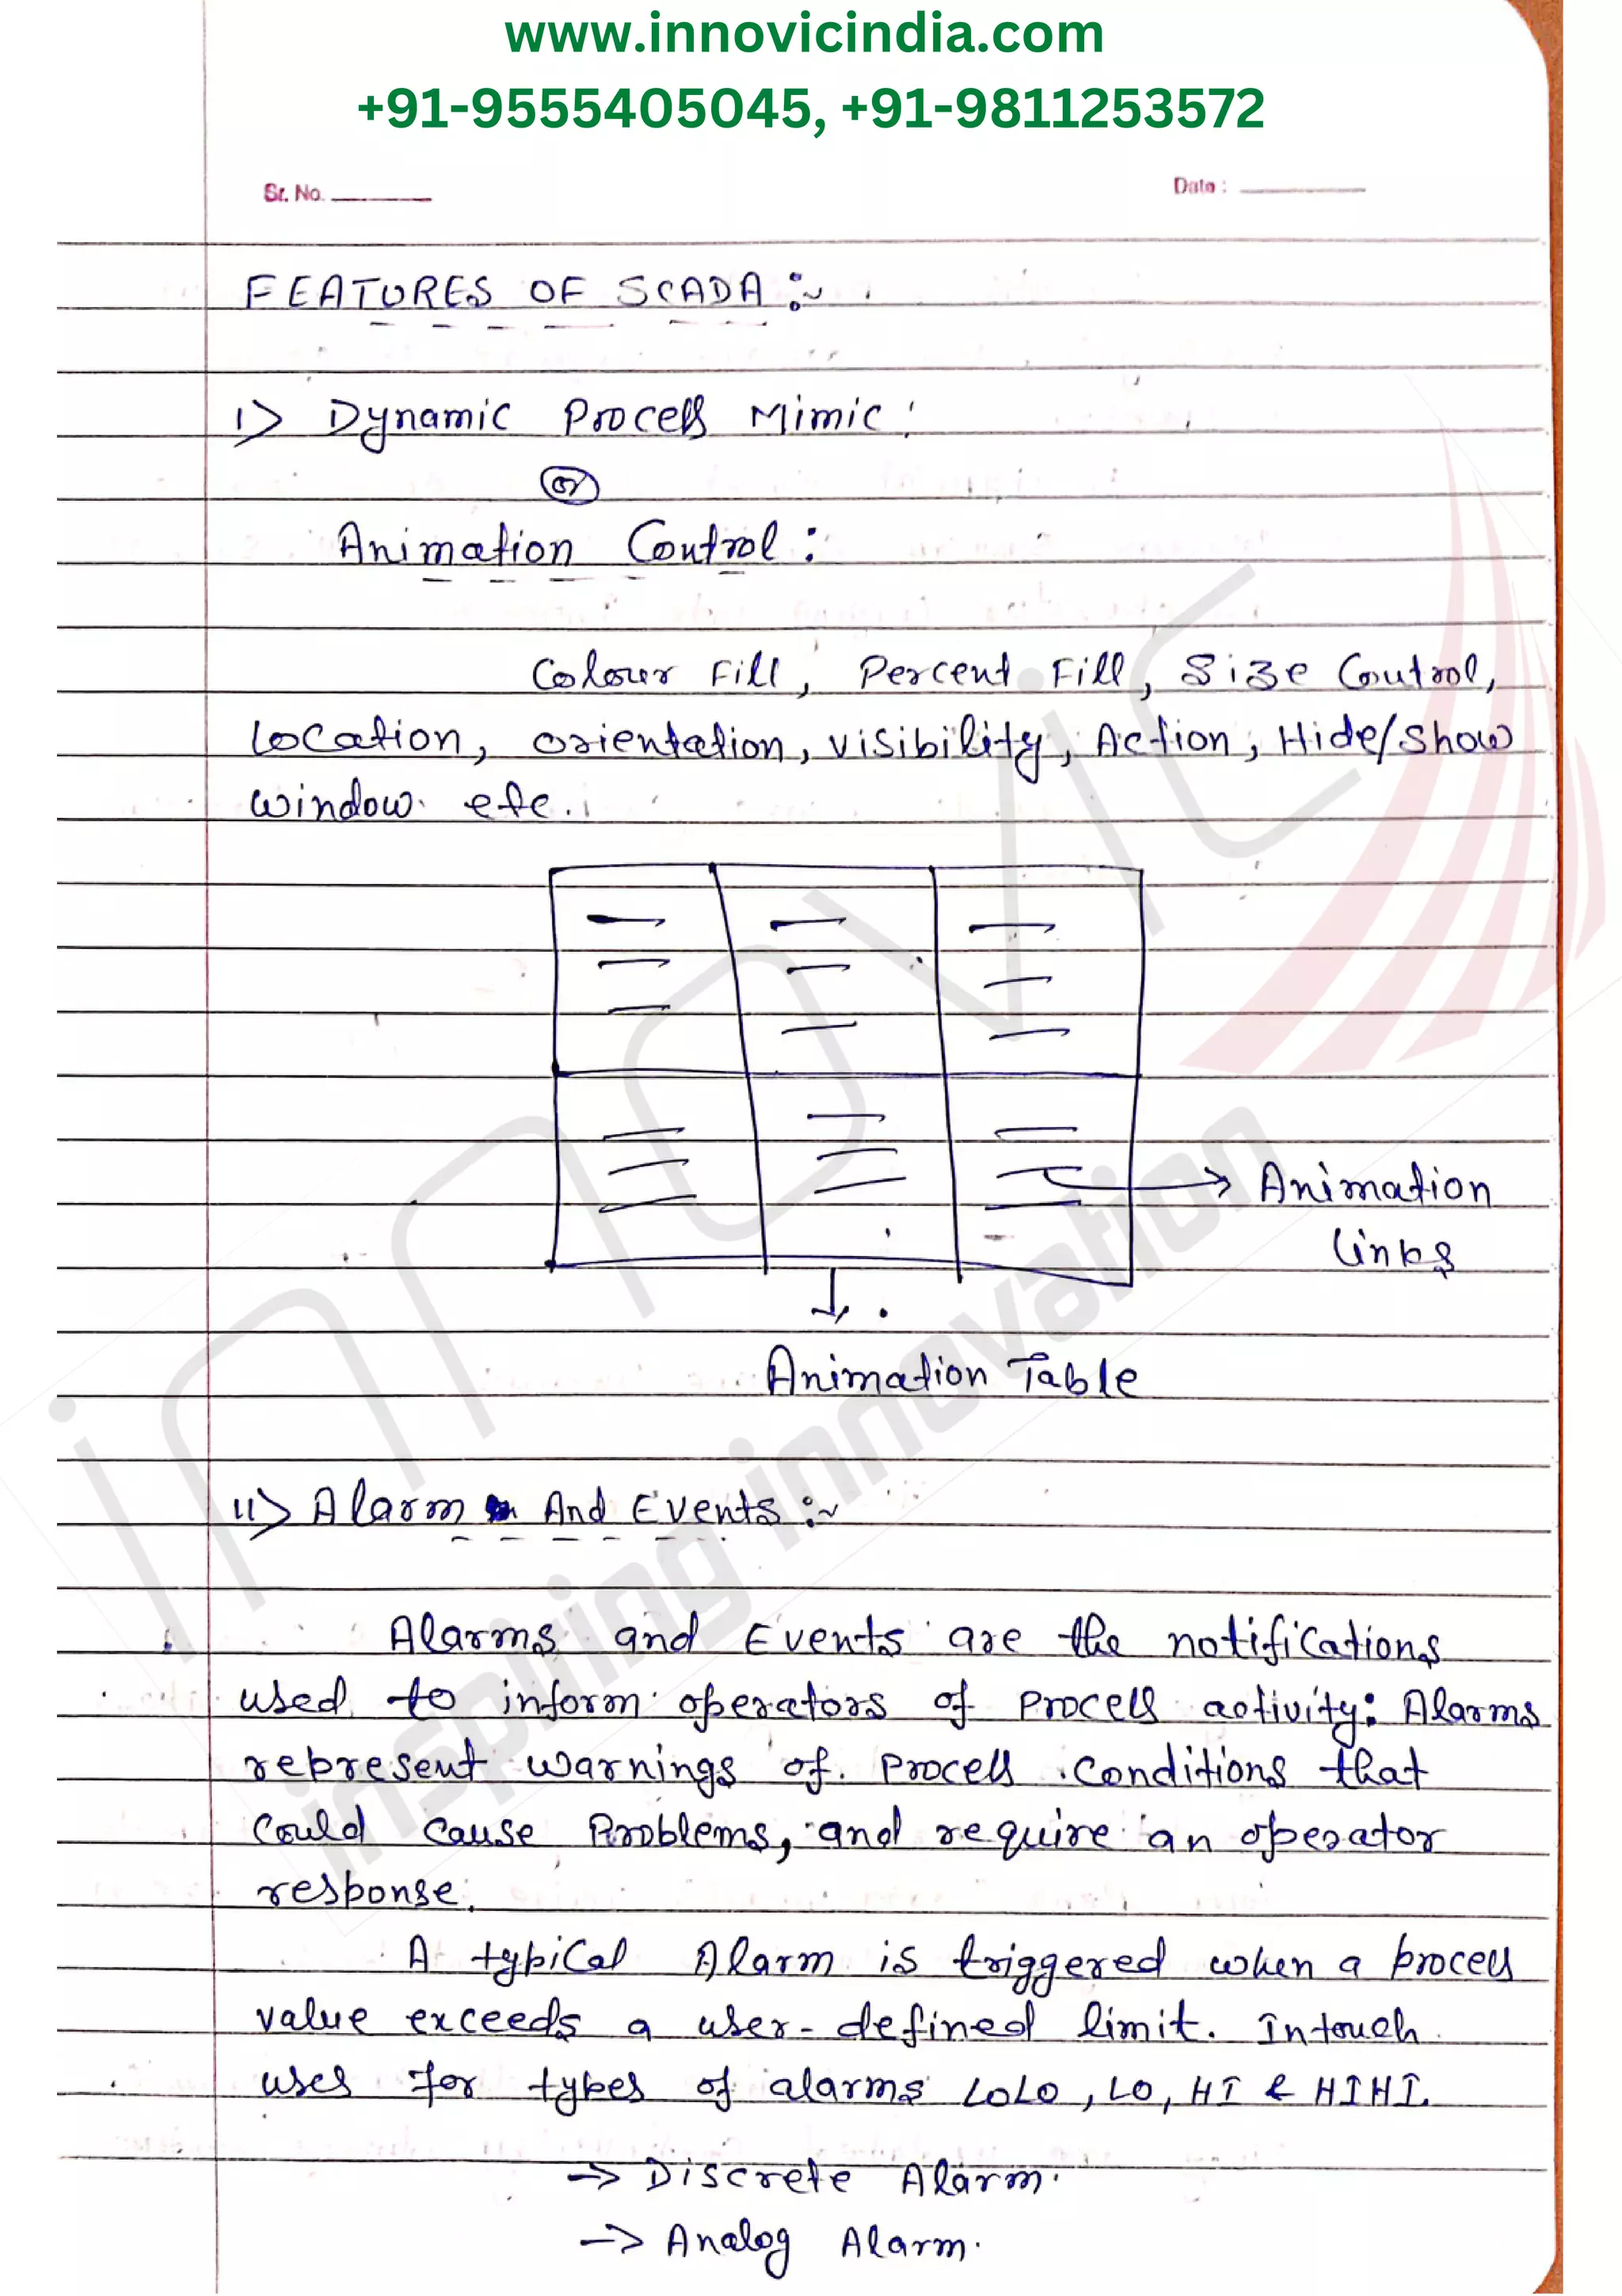 www.innovicindia.com
+91-9555405045, +91-9811253572
Sr. No.
Date :
FEATURES OF SCADA :~
1> Dynamic Process Mimic :
or
Animation Control :
Colour Fill, Percent Fill, Size Control,
Location, orientation, visibility, Action, Hide/Show
window etc.
Animation
Links
Animation Table
11> Alarm And Events :~
Alarms and Events are the notifications
used to inform operators of process activity: Alarms
represent warnings of process conditions that
could cause Problems, and require an operator
response.
A typical Alarm is triggered when a process
value exceeds a user-defined limit. Intouch
uses for types of alarms LOLO, LO, HI & HIHI.
→ Discrete Alarm.
→ Analog Alarm.
innovic
inspiring innovation